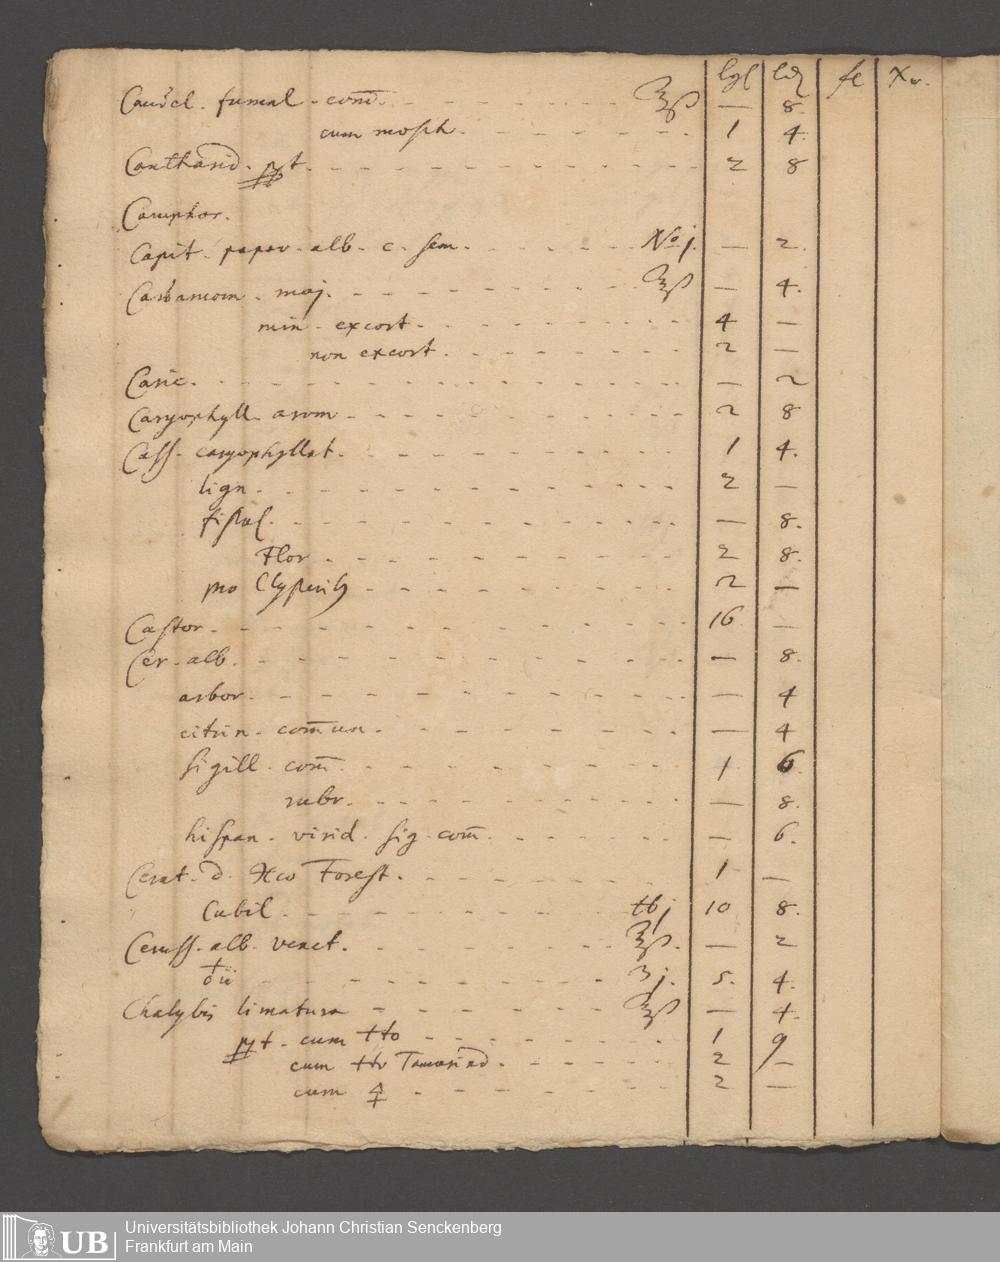 Candel. fumal. com̄. ʒß — 8.
cum mosch. 1 4.
Cantharid. ppt. 2 8
Camphor.
Capit. papav. alb. c. sem. No j. — 2.
Cardamom. maj. ʒß — 4.
min. excort. 4 —
non excort. 2 —
Caric. — 2
Caryophyll. arom 2 8
Cass. caryophyllat. 1 4.
lign. 2 —
fistul. — 8.
Flor. 2 8.
pro Clysterib 2 —
Castor. 16 —
Cer. alb. — 8.
arbor. — 4
citrin. com̄un. — 4
sigill. com̄. 1 6.
rubr. — 8.
hispan. virid. sig. com̄. — 6.
Cerat. d. Forest. 1 —
Cubil. ℔j 10 8.
Ceruss. alb. venet. ʒß. — 2
♁ii ʒj. 5. 4.
Chalybis limatura ʒß — 4.
ppt. cum 1 9
cum Tamarind. 2 —
cum 🜍 2 —
Universitätsbibliothek Johann Christian Senckenberg
Frankfurt am Main
UB